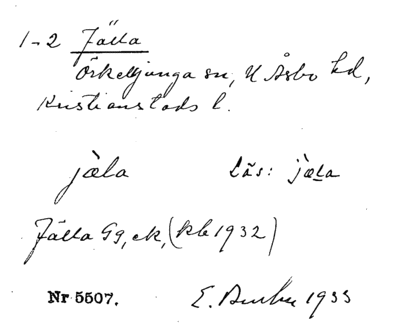 1-2 Jälla
Örkelljunga sn, N Åsbo hd,
Kristianstads l.
jæla Läs: jæla
Jälla Gg, ek, (kb 1932)
Nr 5507. E. 1933